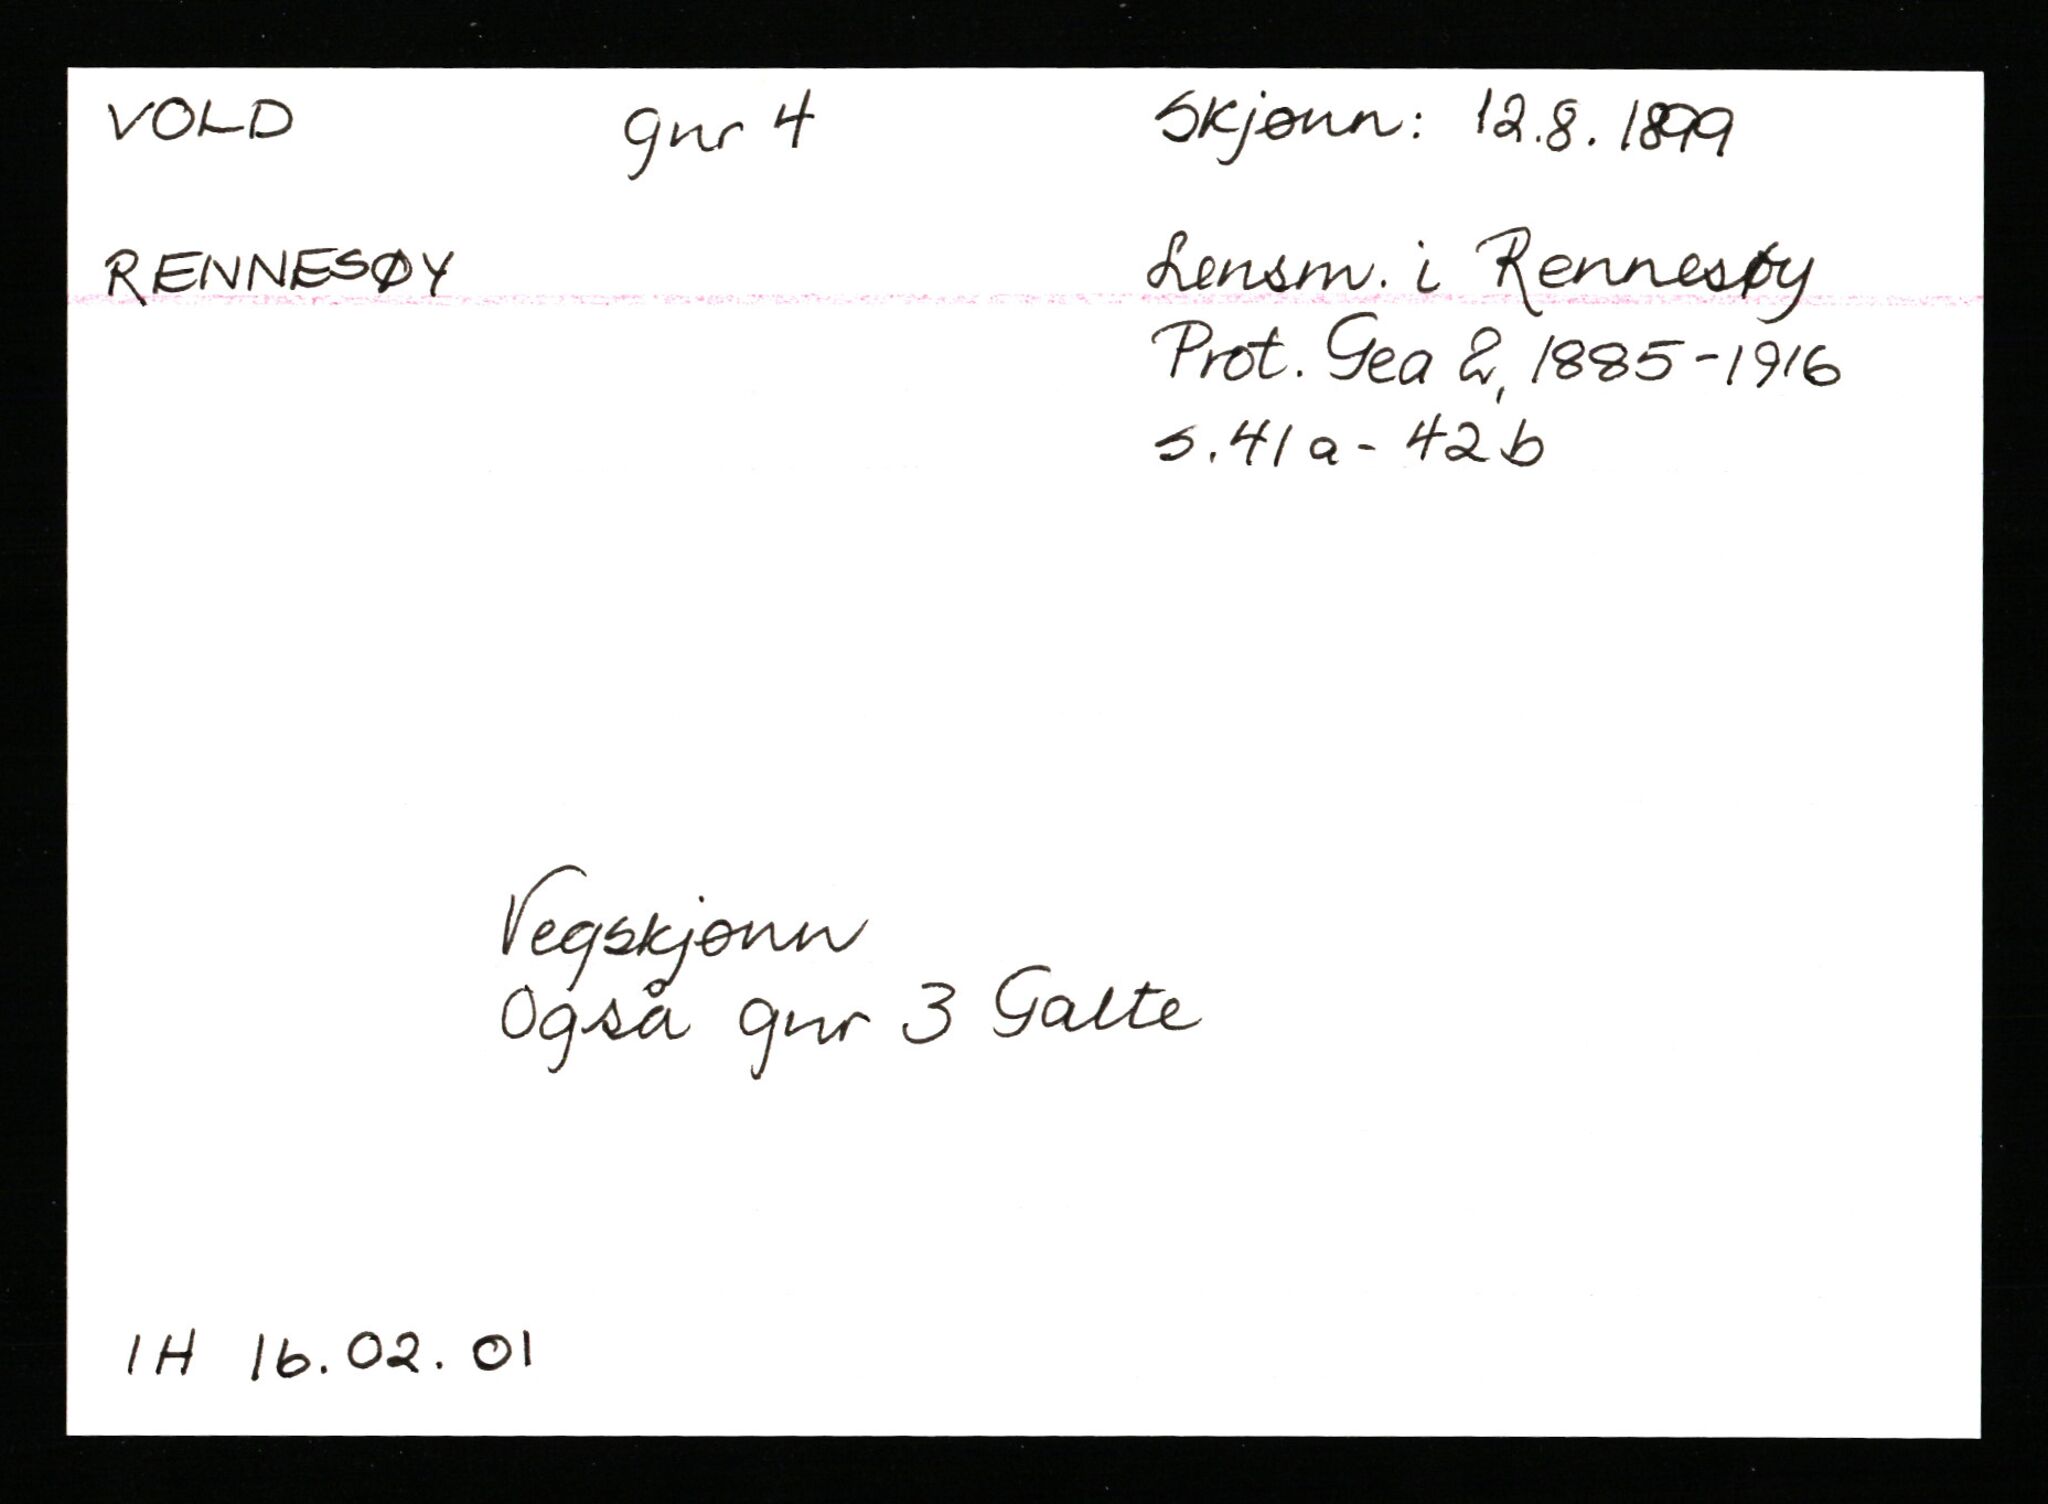 VOLD gnr 4 Skjønn: 12.8.1899
RENNESØY Lensm. i Rennesøy
Prot. Gea 2, 1885-1916
s.41a-42b
Vegskjønn
Også gnr 3 Galte
IH 16.02.01